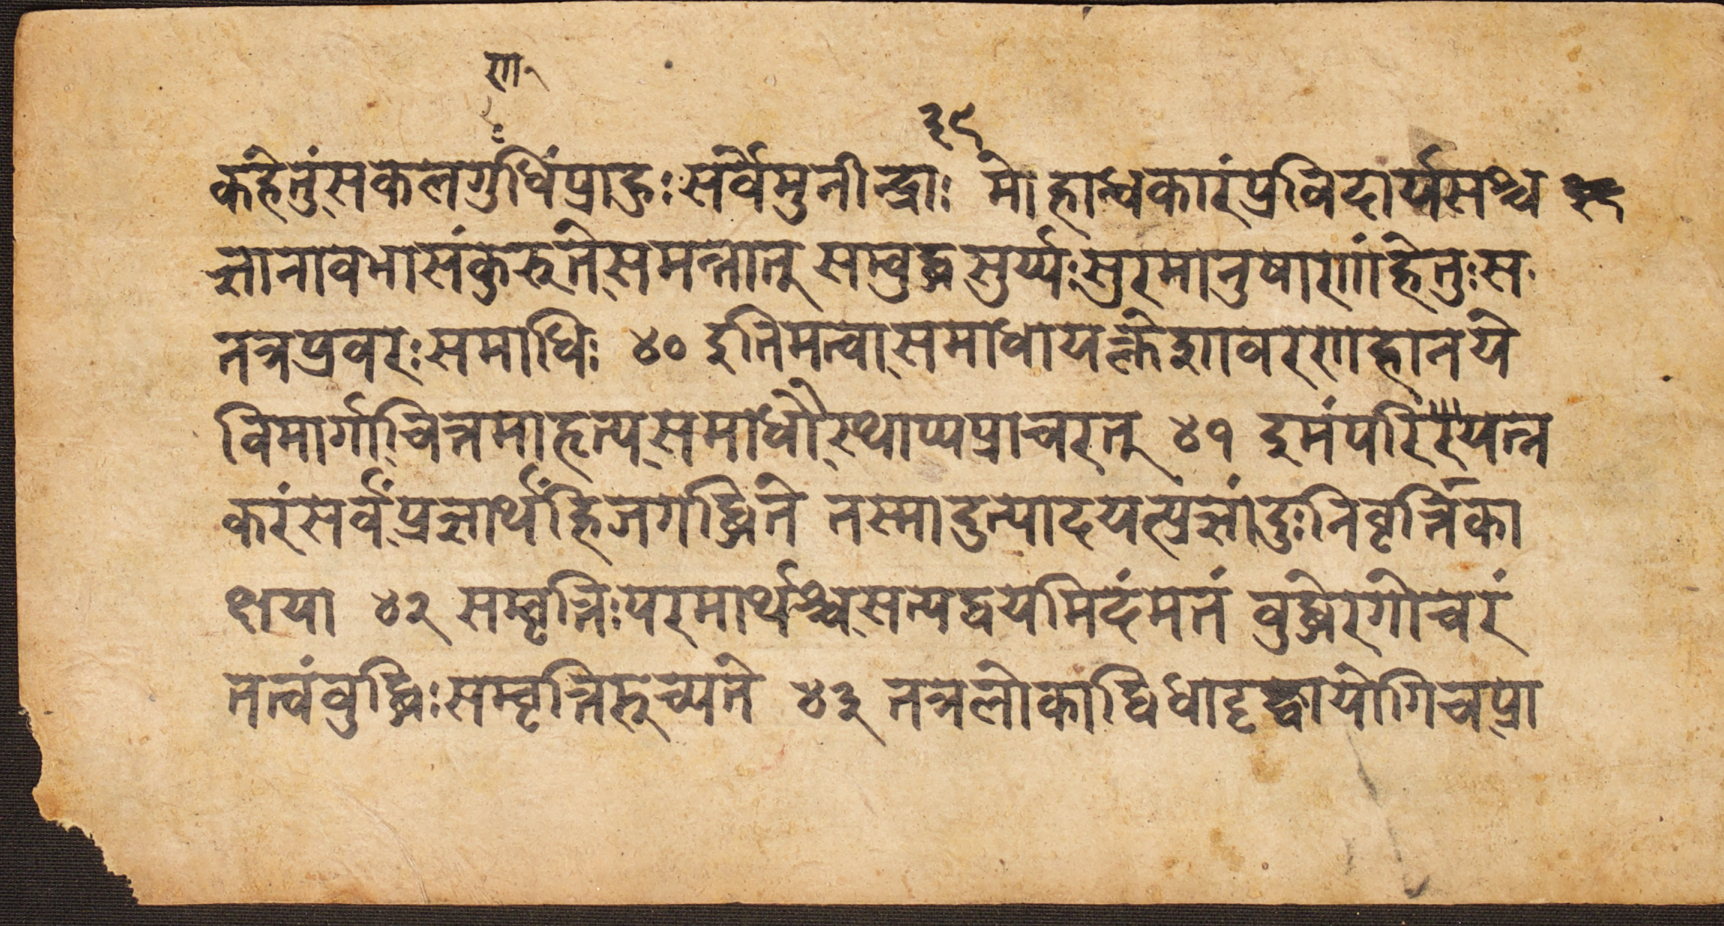 णा
३९
कहेतुंसकलगुधिंप्राहुःसर्वेमुनीन्द्राः मोहान्धकारंप्रविदार्यसश्च
ज्ञानावभासंकुरुतेसमन्तात् सम्बुद्धसुर्य्यःसुरमानुषाणांहेतुःस
तत्रप्रवरःसमाधिः ४० इतिमत्वासमाधायक्लेशावरणहानये
विमार्गाच्चित्तमाहृत्यसमाधौस्थाप्यप्राचरत् ४१ इमंपरिरयन्त
करंसर्वंप्रज्ञार्थंहिजगद्धिते तस्मादुत्पादयत्प्रज्ञांदुःनिवृर्त्तिका
क्षया ४२ सम्वृत्तिःपरमार्थश्चसत्यद्वयमिदंमतं वुद्धेरगोचरं
तत्वंवुद्धिःसम्वृत्तिरुच्यते ४३ तत्रलोकाद्विधादृष्टायोगिचप्रा